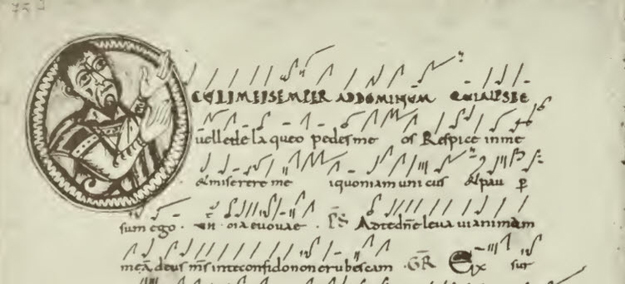 CULI MEI SEMPER AD DOMINUM QUIA IPSE
uellet de laqueo pedes me os Respice in me
& miserere me i quoniam unicus & pau p
sum ego . euouae . PS Ad te dne leuaui animam
meā deus ms in te confido non erubescam . GR Ex sur